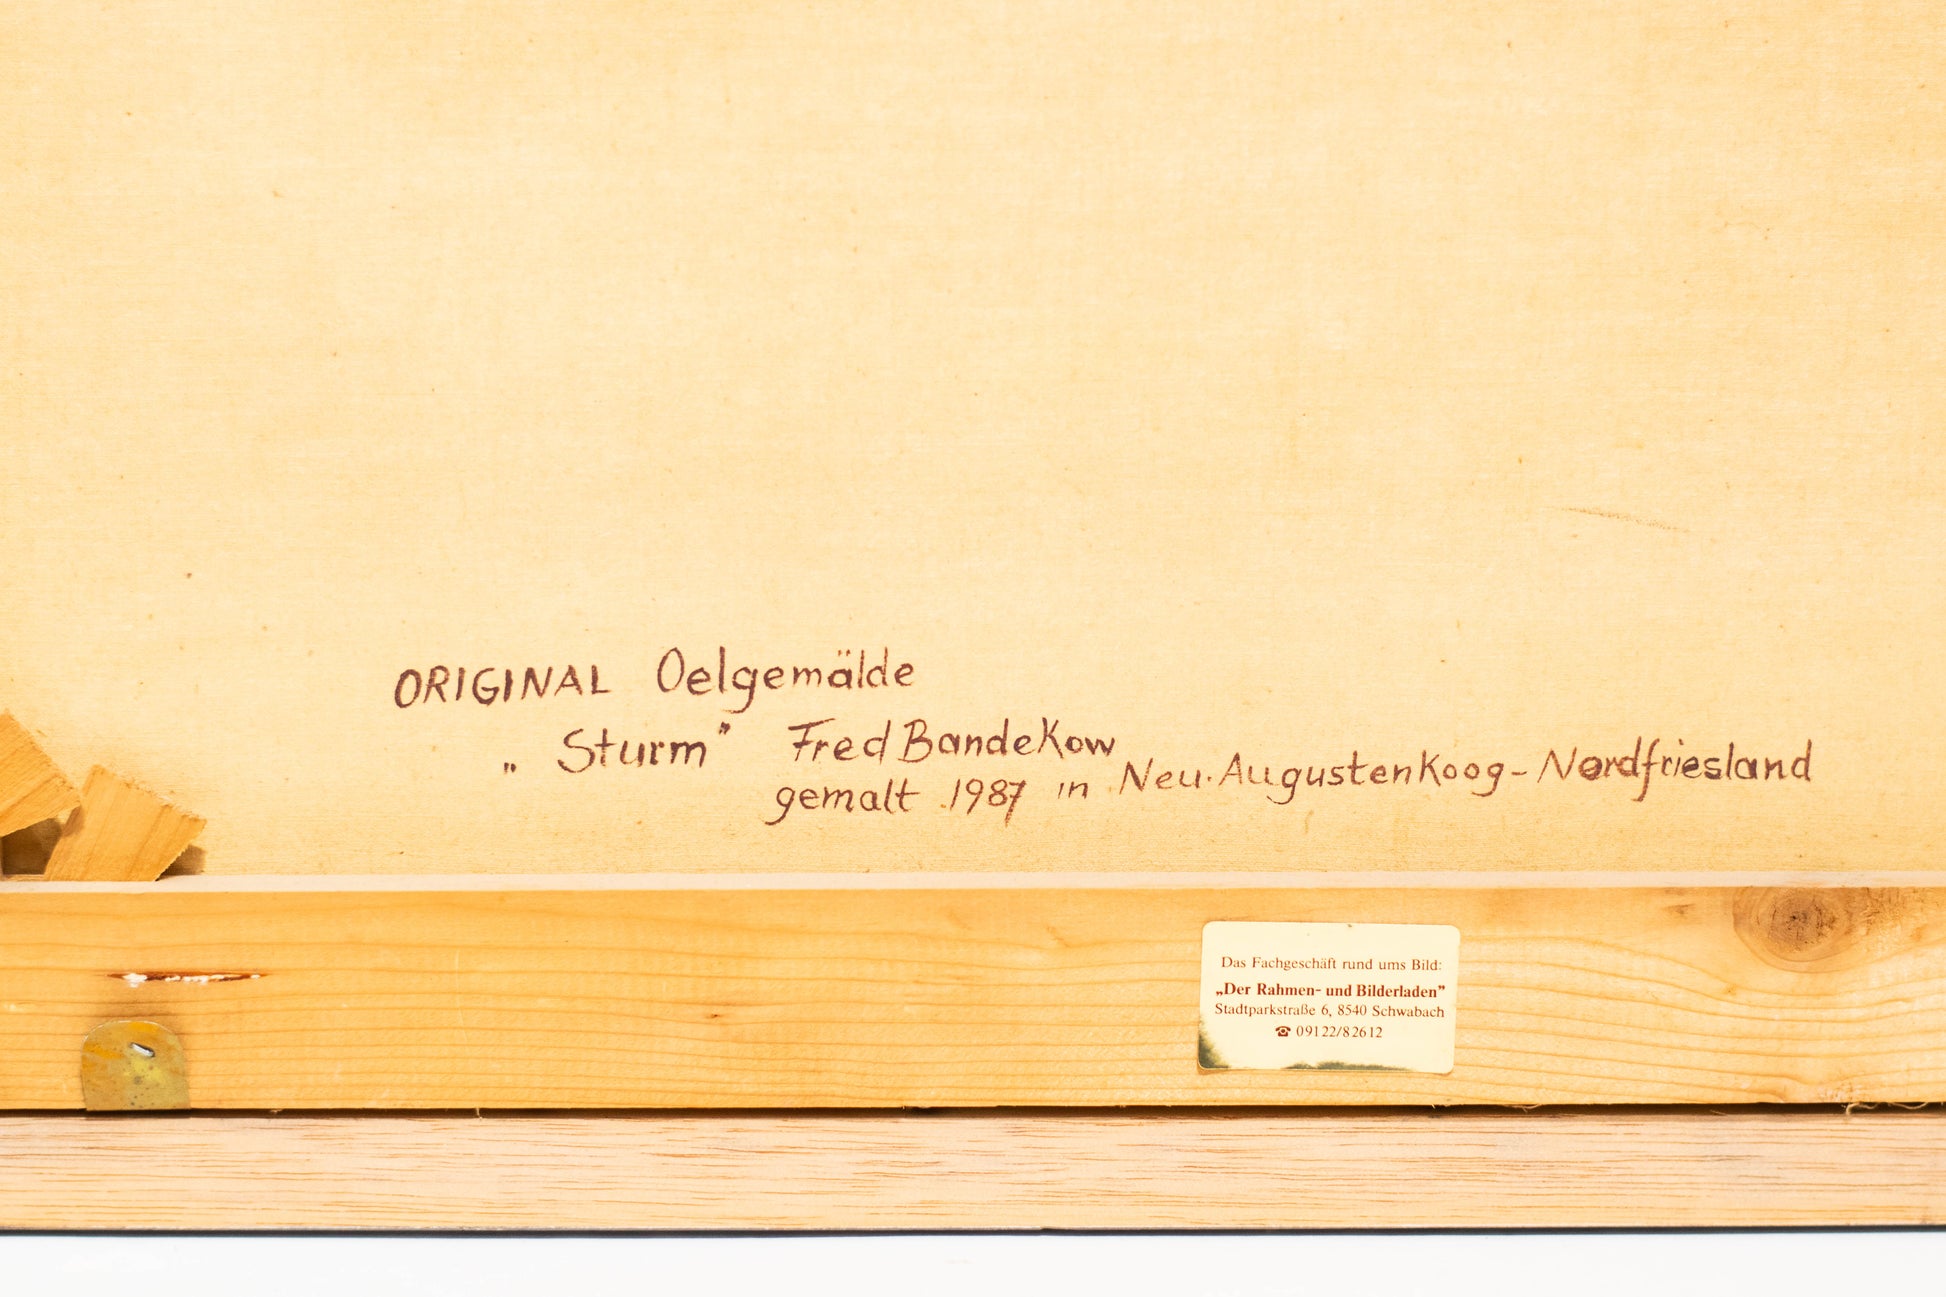 ORIGINAL Oelgemälde
„Sturm” Fred Bandekow
gemalt 1987 in Neu-Augustenkoog - Nordfriesland
Das Fachgeschäft rund ums Bild:
„Der Rahmen- und Bilderladen”
Stadtparkstraße 6, 8540 Schwabach
☎ 09122/82612